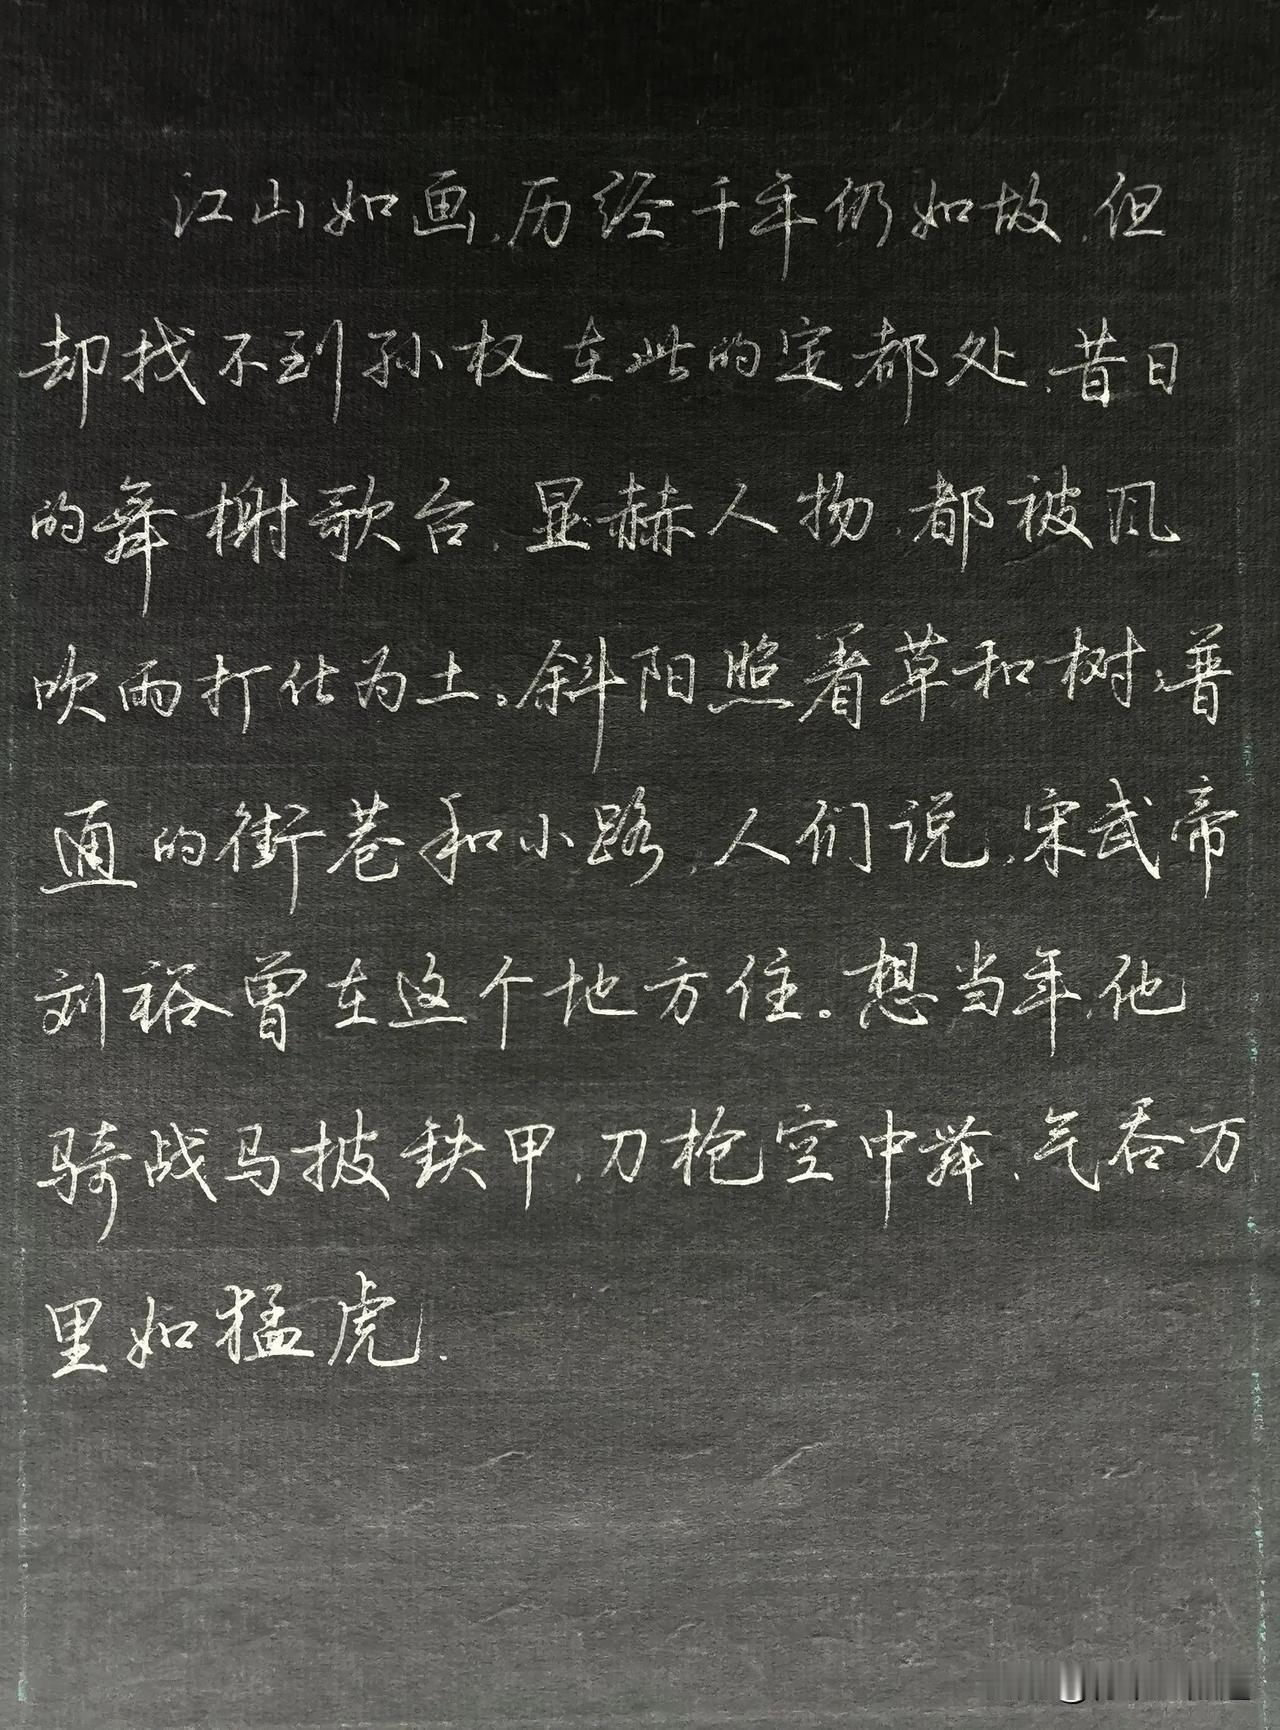 江山如画,历经千年仍如故,但
却找不到孙权在此的定都处,昔日
的舞榭歌台,显赫人物,都被风
吹雨打化为土。斜阳照着草和树,普
通的街巷和小路,人们说,宋武帝
刘裕曾在这个地方住。想当年,他
骑战马披铁甲,刀枪空中舞,气吞万
里如猛虎.